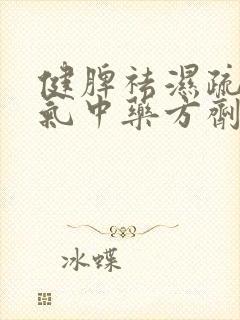 健脾祛濕疏
氣中藥方劑
冰蝶